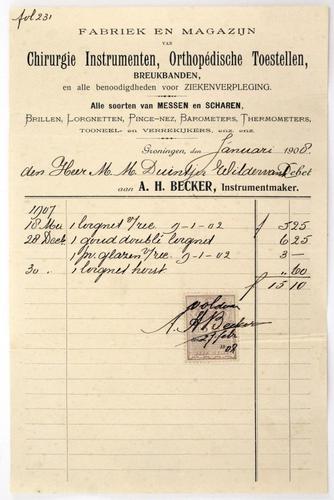 fol 231
FABRIEK EN MAGAZIJN
VAN
Chirurgie Instrumenten, Orthopédische Toestellen,
BREUKBANDEN,
en alle benoodigdheden voor ZIEKENVERPLEGING.
Alle soorten van MESSEN en SCHAREN,
BRILLEN, LORGNETTEN, PINCE-NEZ, BAROMETERS, THERMOMETERS,
TOONEEL- EN VERREKIJKERS, enz. enz.
Groningen, den Januari 1908.
den Heer M. M. Duintjer Wildervank Debet
aan A. H. BECKER, Instrumentmaker.
1907
18 Mei 1 lorgnet v/ree 7-1-02 f 5 25
28 Dec 1 goud doublé lorgnet 6 25
1 pr. glazen v/ree 7-1-02 3 —
30 " 1 lorgnet koord " 60
f 15 10
voldaan
A. H. Becker
29 febr
08